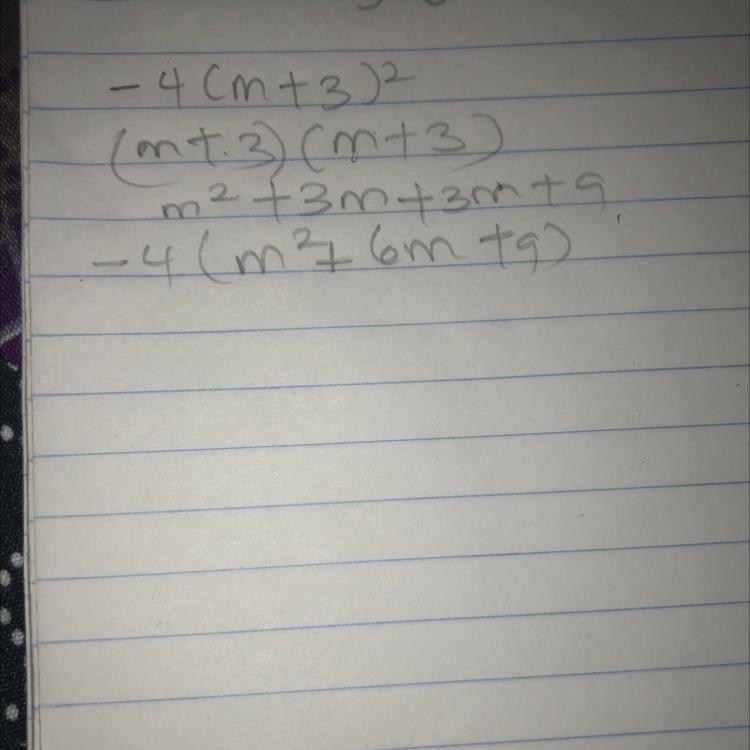 -4(m+3)²
(m+3)(m+3)
m²+3m+3m+9
-4(m²+6m+9)